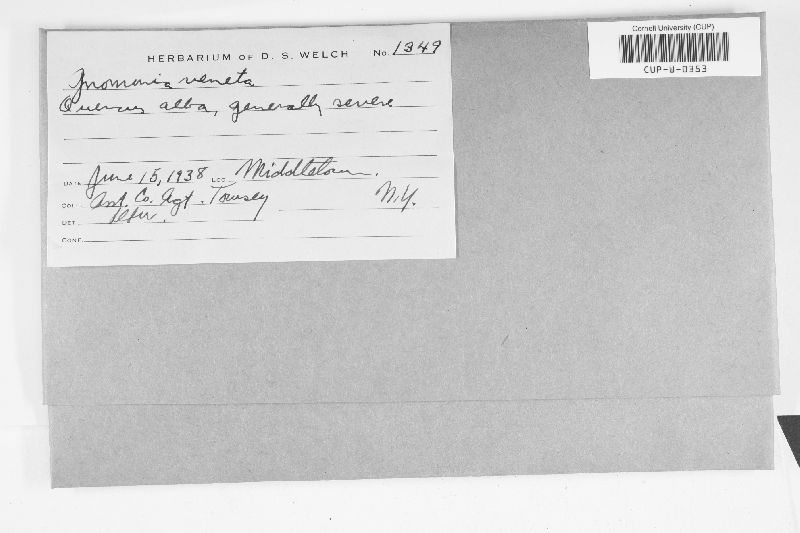 HERBARIUM OF D. S. WELCH No. 1349
Gnomonia veneta
Quercus alba, generally severe
DATE June 15, 1938 LOC. Middletown.
COL. Asst. Co. Agt. Tousey N.Y.
DET.
CONF.
Cornell University (CUP)
CUP-U-0353